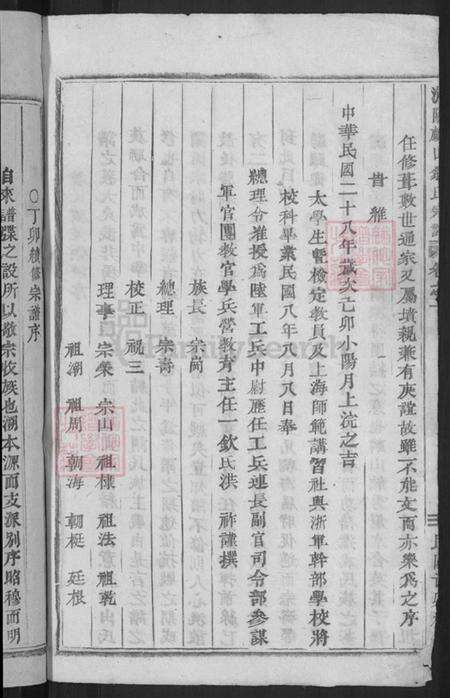 任修葺數世通家又屬墳親兼有庚誼故雖不能文而亦樂爲之序
貴雅
中華民國二十八年歲次己卯小陽月上浣之吉
太學生暨檢定教員及上海師範講習社與浙軍幹部學校將
校科畢業民國八年八月八日奉
總理令准授爲陸軍工兵中尉歷任工兵連長副官司令部參謀
軍官團教官學兵營教育主任一欽氏洪 謹撰
族長 宗尚
總理 宗壽
校正 祝三
理事 宗榮 宗山 祖棣 祖法 祖乾
祖潮 祖周 朝海 朝梃 廷根
○丁卯續修宗譜序
自來譜諜之設所以敬宗收族也溯本源而支派別序昭穆而明
FamilySearch